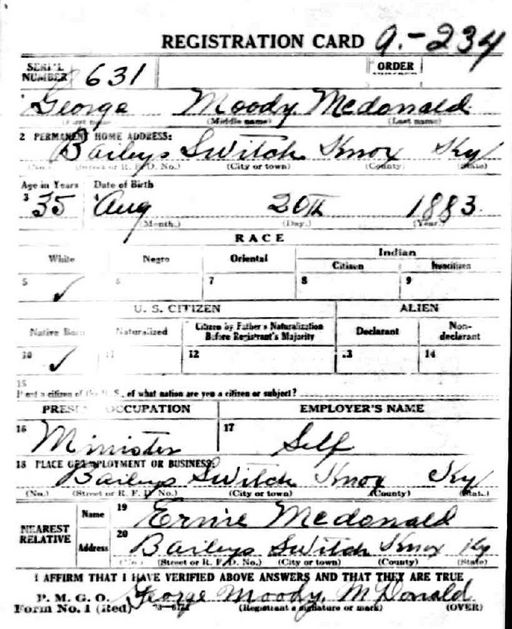 REGISTRATION CARD A.-234
SERIAL NUMBER 631 ORDER
George Moody Mcdonald
(First name) (Middle name) (Last name)
2 PERMANENT HOME ADDRESS:
Baileys Switch Knox Ky
(No.) (Street or R. F. D. No.) (City or town) (County) (State)
Age in Years Date of Birth
3 35 Aug 20th 1883
(Month.) (Day.) (Year.)
RACE
White Negro Oriental Indian
Citizen Noncitizen
5 ✓ 6 7 8 9
U. S. CITIZEN ALIEN
Native Born Naturalized Citizen by Father's Naturalization Before Registrant's Majority Declarant Non-declarant
10 ✓ 11 12 13 14
15
If not a citizen of the U. S., of what nation are you a citizen or subject?
PRESENT OCCUPATION EMPLOYER'S NAME
16 Minister 17 Self
18 PLACE OF EMPLOYMENT OR BUSINESS:
Baileys Switch Knox Ky
(No.) (Street or R. F. D. No.) (City or town) (County) (State.)
NEAREST RELATIVE Name 19 Ernie Mcdonald
Address 20 Baileys Switch Knox Ky
(No.) (Street or R. F. D. No.) (City or town) (County) (State)
I AFFIRM THAT I HAVE VERIFIED ABOVE ANSWERS AND THAT THEY ARE TRUE
P. M. G. O.
Form No. 1 (Red) George Moody McDonald
(Registrant's signature or mark) (OVER)